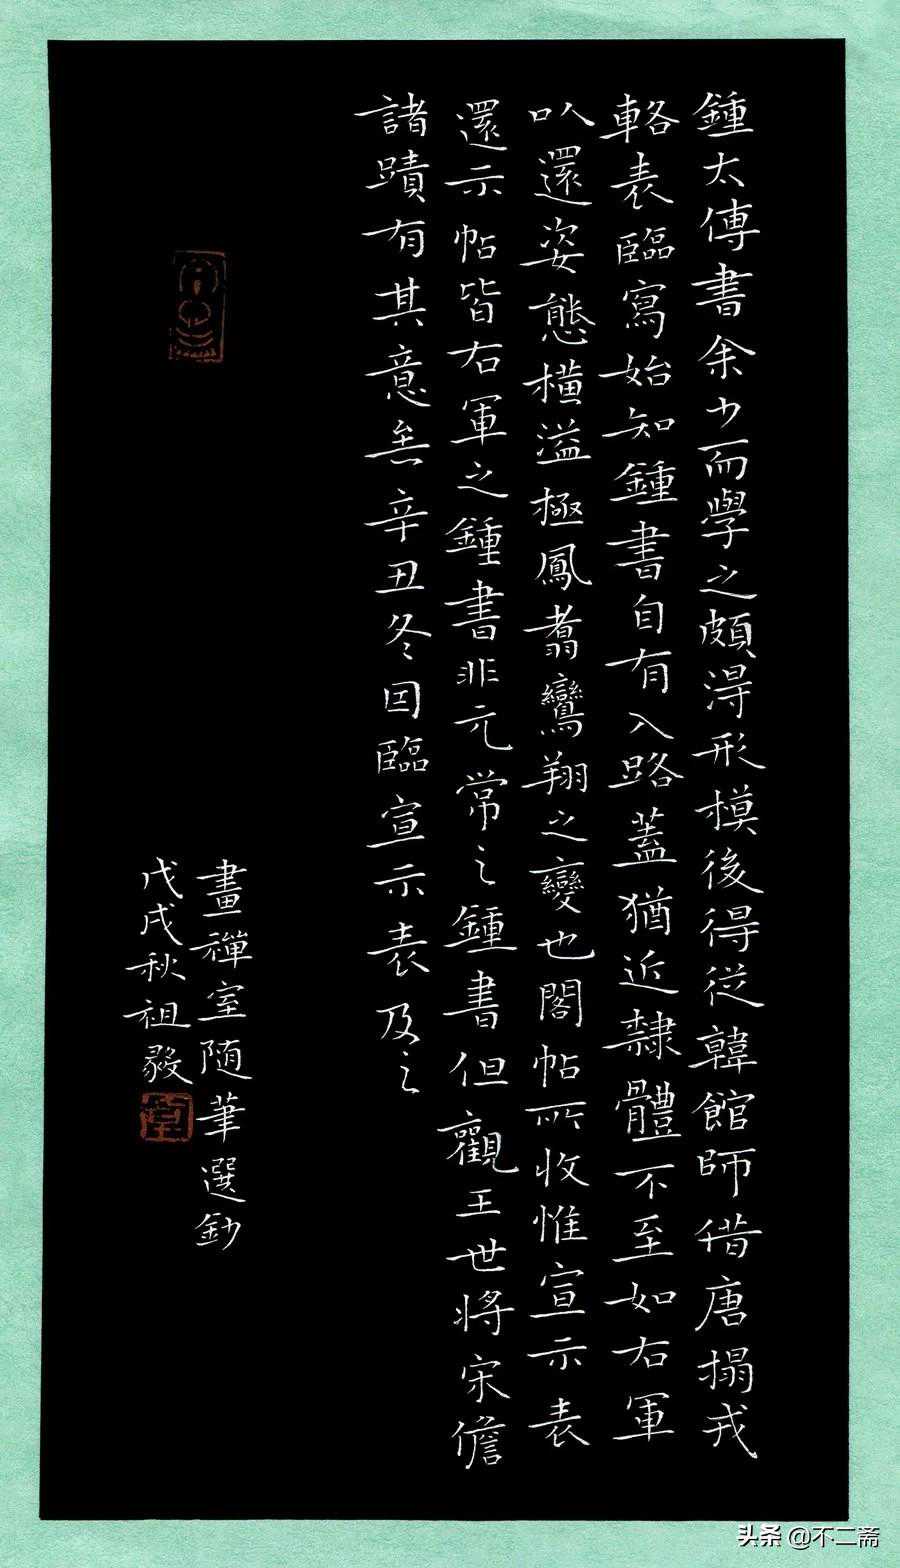 鍾太傅書余少而學之頗淂形模後得從韓館師借唐搨戎
輅表臨寫始知鍾書自有入路蓋猶近隸體不至如右軍
以還姿態橫溢極鳳翥鸞翔之變也閣帖所收惟宣示表
還示帖皆右軍之鍾書非元常之鍾書但觀王世將宋儋
諸蹟有其意矣辛丑冬因臨宣示表及之
畫禪室随筆選鈔
戊戌秋祖毅
头条 @不二斋